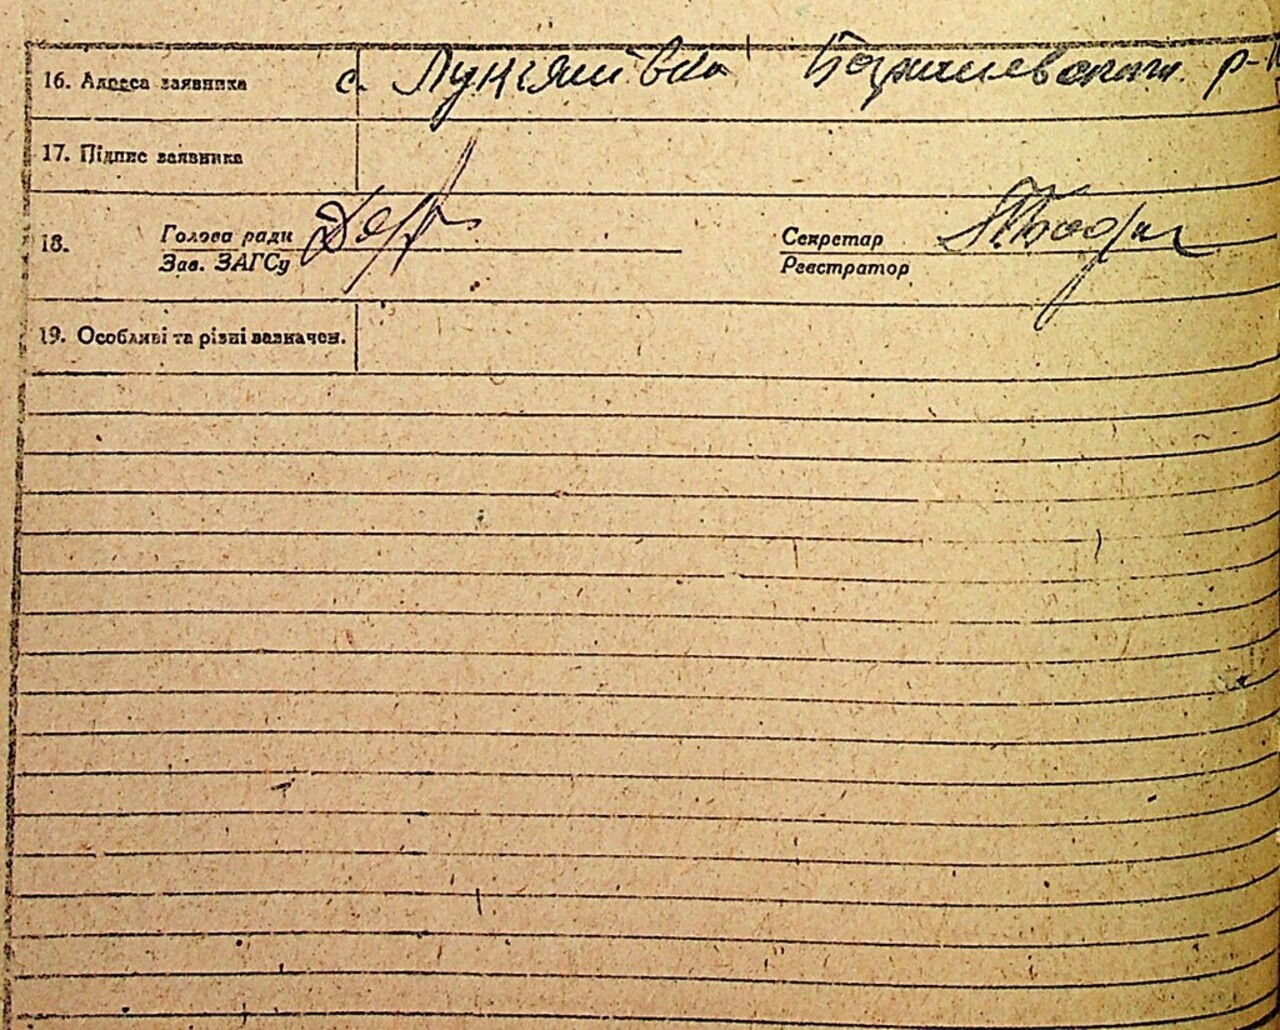 16. Адреса заявника с. Лунгамівка р-н
17. Підпис заявника
18. Голова ради
Зав. ЗАГСу
Секретар
Реєстратор
19. Особливі та різні зазначен.